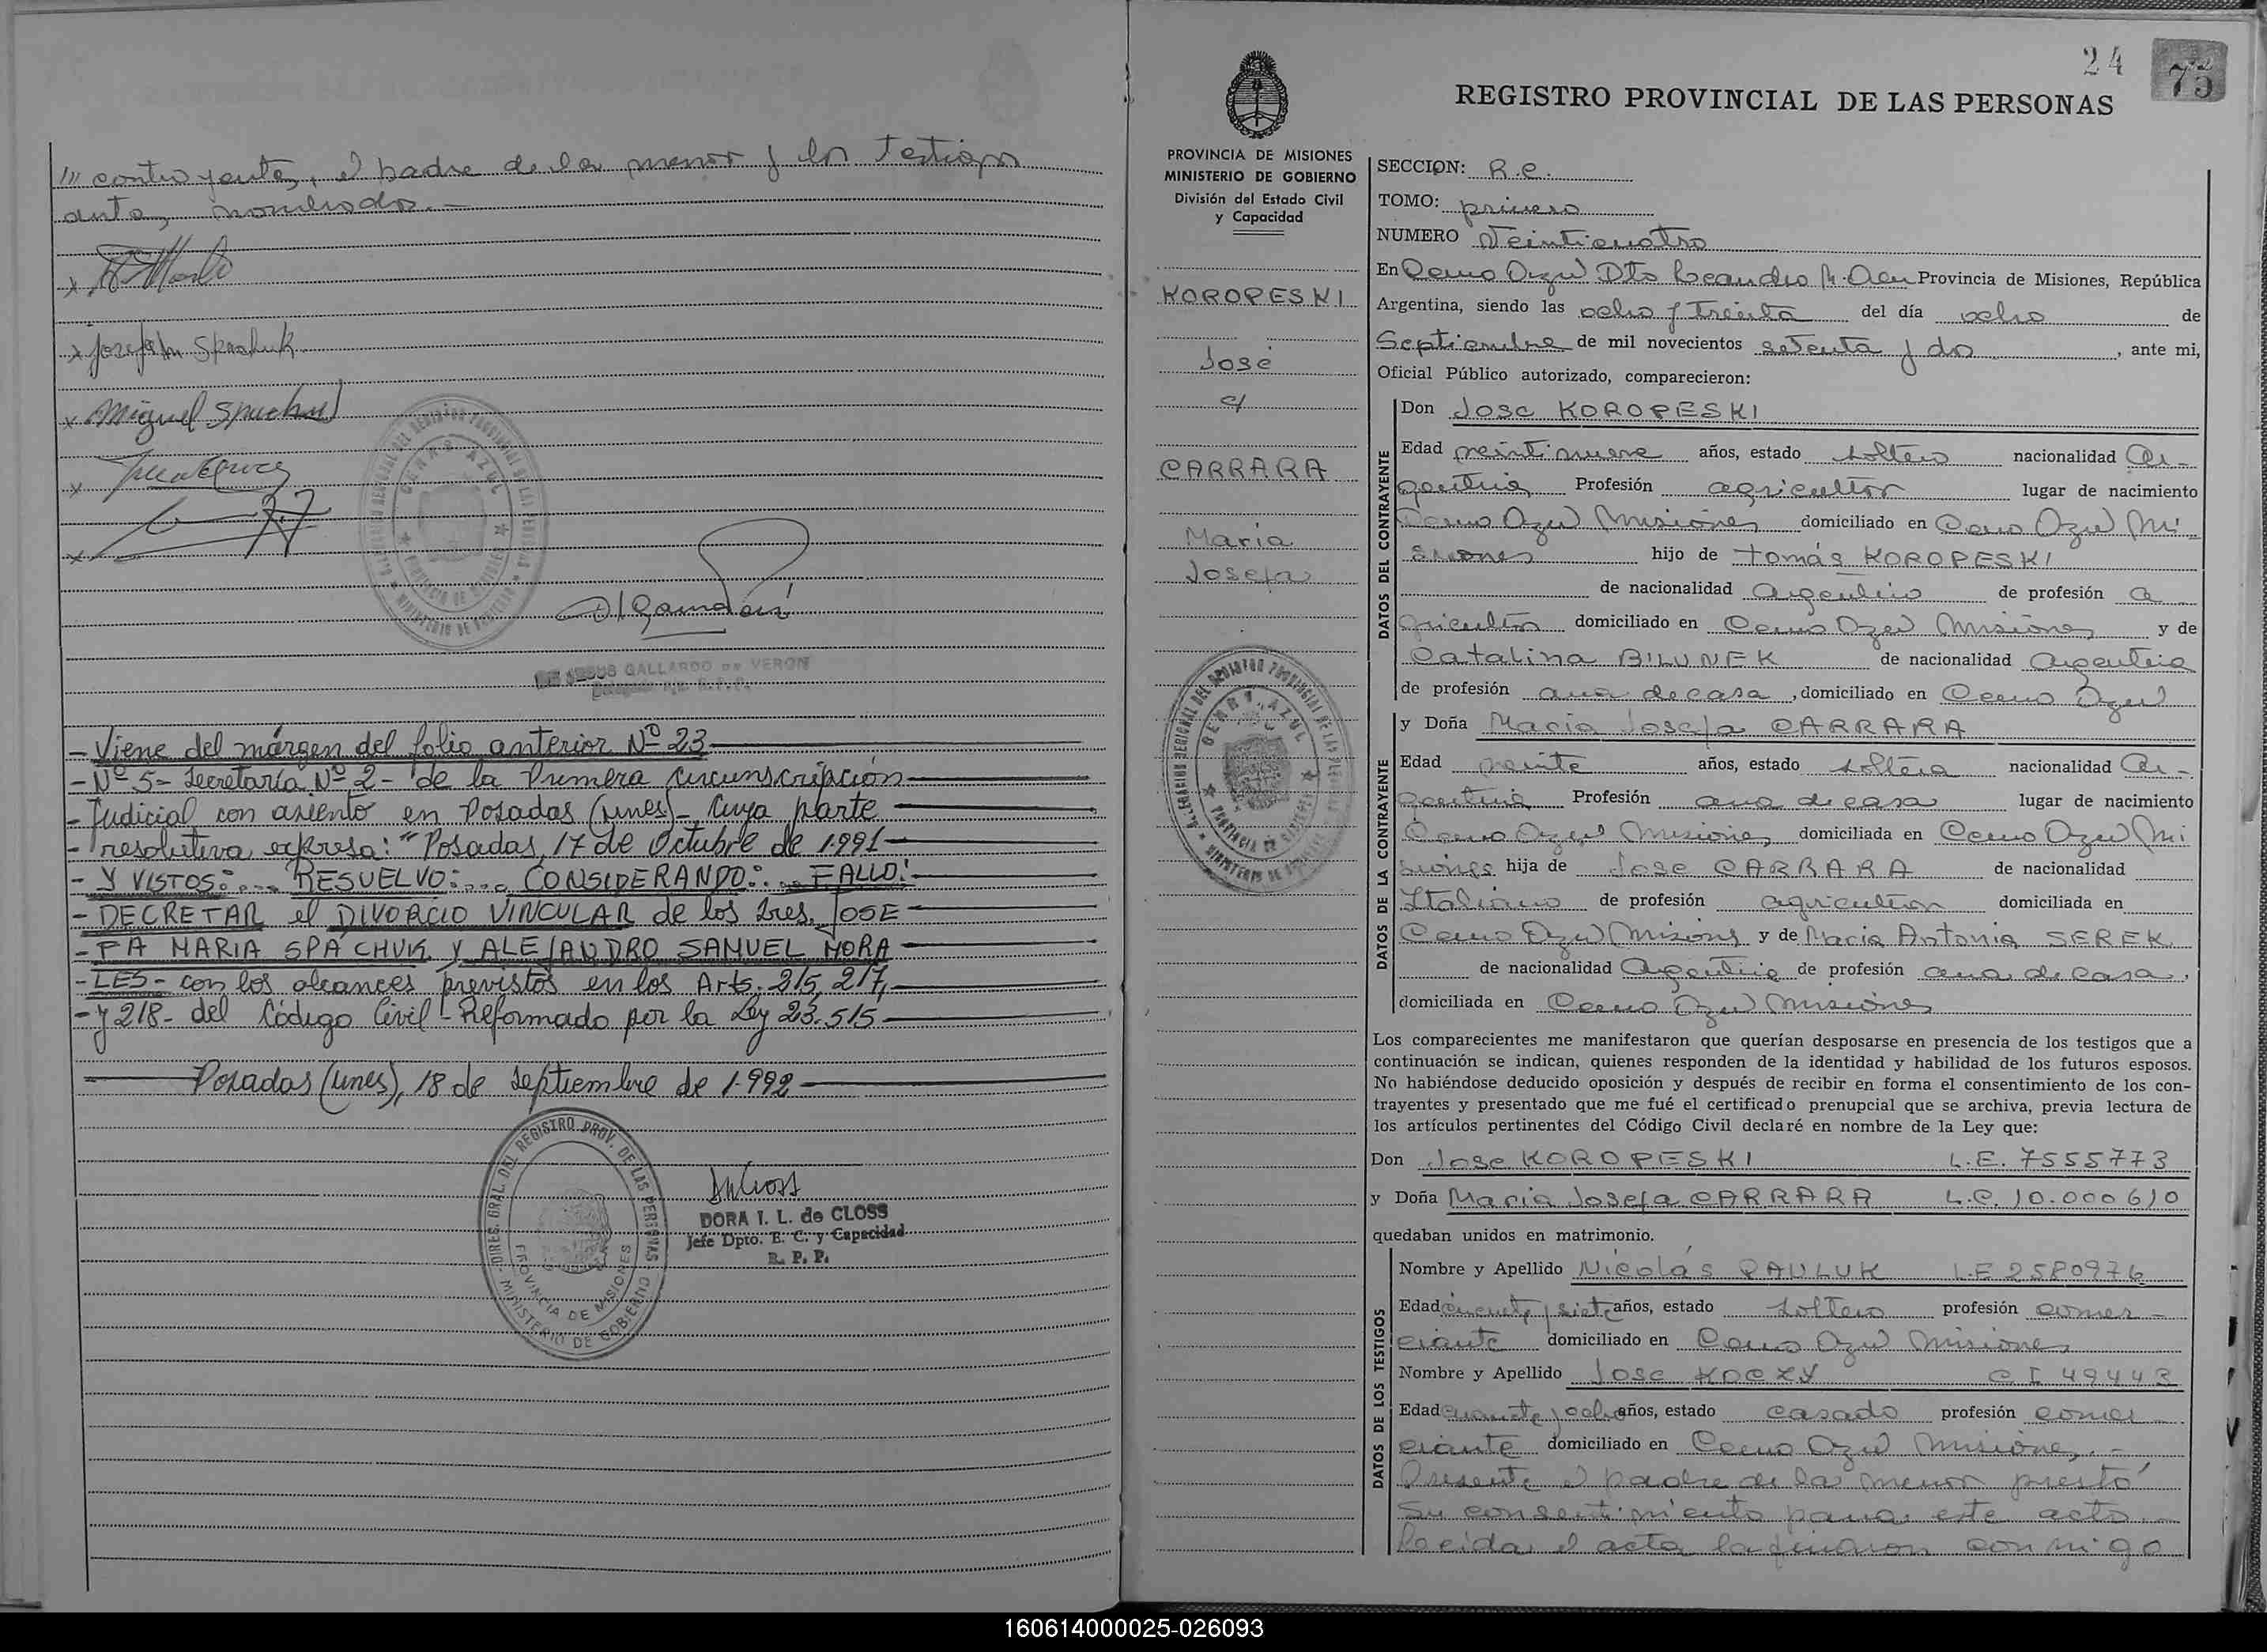 /// contrayentes, el padre de la menor y los testigos
antes nombrados.-
x
x Josefa M Spachuk
x Miguel Spachuk
x
x
DE JESUS GALLARDO DE VERON
- Viene del márgen del folio anterior Nº 23
- Nº 5 - Secretaría Nº 2 - de la Primera Circunscripción
- Judicial con asiento en Posadas (Mnes) - Cuya parte
- resolutiva expresa: "Posadas, 17 de Octubre de 1.991
- Y VISTOS:.... RESUELVO:.... CONSIDERANDO:.... FALLO:
- DECRETAR el DIVORCIO VINCULAR de los Sres. JOSE
- FA MARIA SPACHUK Y ALEJANDRO SAMUEL MORA
- LES - con los alcances previstos en los Arts. 215, 217,
- y 218 - del Código Civil - Reformado por la Ley 23.515
Posadas (Mnes), 18 de Septiembre de 1.992
DIREC. GRAL. DEL REGISTRO PROV. DE LAS PERSONAS
PROVINCIA DE MISIONES
MINISTERIO DE GOBIERNO
DORA I. L. de CLOSS
Jefe Dpto. E. C. y Capacidad
R. P. P.
24
75
REGISTRO PROVINCIAL DE LAS PERSONAS
PROVINCIA DE MISIONES
MINISTERIO DE GOBIERNO
División del Estado Civil
y Capacidad
KOROPESKI
José
c/
CARRARA
María
Josefa
SECCION: R.C.
TOMO: primero
NUMERO Veinticuatro
En Cerro Azul Dto Leandro N. Alem Provincia de Misiones, República
Argentina, siendo las ocho y treinta del día ocho de
Septiembre de mil novecientos setenta y dos, ante mi,
Oficial Público autorizado, comparecieron:
DATOS DEL CONTRAYENTE
Don José KOROPESKI
Edad veintinueve años, estado soltero nacionalidad Ar-
gentina Profesión agricultor lugar de nacimiento
Cerro Azul Misiones domiciliado en Cerro Azul Mi
siones hijo de Tomás KOROPESKI
de nacionalidad Argentino de profesión a
gricultor domiciliado en Cerro Azul Misiones y de
Catalina BILUNEK de nacionalidad Argentina
de profesión ama de casa, domiciliado en Cerro Azul
DATOS DE LA CONTRAYENTE
y Doña María Josefa CARRARA
Edad veinte años, estado soltera nacionalidad Ar-
gentina Profesión ama de casa lugar de nacimiento
Cerro Azul Misiones domiciliada en Cerro Azul Mi
siones hija de José CARRARA de nacionalidad
Italiano de profesión agricultor domiciliada en
Cerro Azul Misiones y de María Antonia SEREK
de nacionalidad Argentina de profesión ama de casa,
domiciliada en Cerro Azul Misiones
Los comparecientes me manifestaron que querían desposarse en presencia de los testigos que a
continuación se indican, quienes responden de la identidad y habilidad de los futuros esposos.
No habiéndose deducido oposición y después de recibir en forma el consentimiento de los con-
trayentes y presentado que me fué el certificado prenupcial que se archiva, previa lectura de
los artículos pertinentes del Código Civil declaré en nombre de la Ley que:
Don José KOROPESKI L.E. 7555773
y Doña María Josefa CARRARA L.C. 10.000610
quedaban unidos en matrimonio.
DATOS DE LOS TESTIGOS
Nombre y Apellido Nicolás PAULUK L.E 2580976
Edad cincuenta y siete años, estado soltero profesión comer-
ciante domiciliado en Cerro Azul Misiones
Nombre y Apellido José KOCZY C I 49442
Edad cuarenta y ocho años, estado casado profesión comer-
ciante domiciliado en Cerro Azul Misiones.-
Presente el padre de la menor prestó
su consentimiento para este acto.-
Leída el acta la firmaron conmigo
160614000025-026093